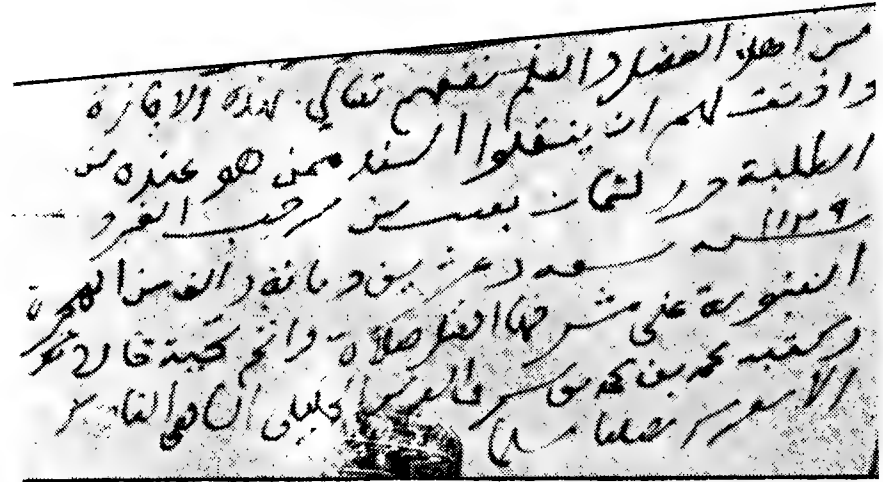 من اهل الفضل والعلم نفعهم تعالى بهذه الاجازة
واذنت لهم ان ينقلوا السند ممن هو عنده من
الطلبة حرر لثمان بقيت من رجب الفرد
١١٢٩ سنة تسعة وعشرين ومائة والف من الهجرة
النبوية على مشرفها افضل صلاة واتم تحية قاله
وكتبه محمد بن محمد بن شرف الدين الخليلي الشافعي القادري
الاشعري مصليا مسلما